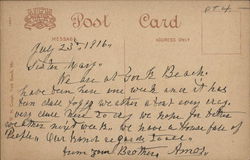 Post Card
MESSAGE
ADDRESS ONLY
July 23rd 1916
Sister Mary.
We are at York Beach.
have been here one week and it has
been dull foggy weather about every day.
very clear here to day we hope for better
weather next week. we have a house full of
People. Our kind regards to all.
from your Brother Amos.